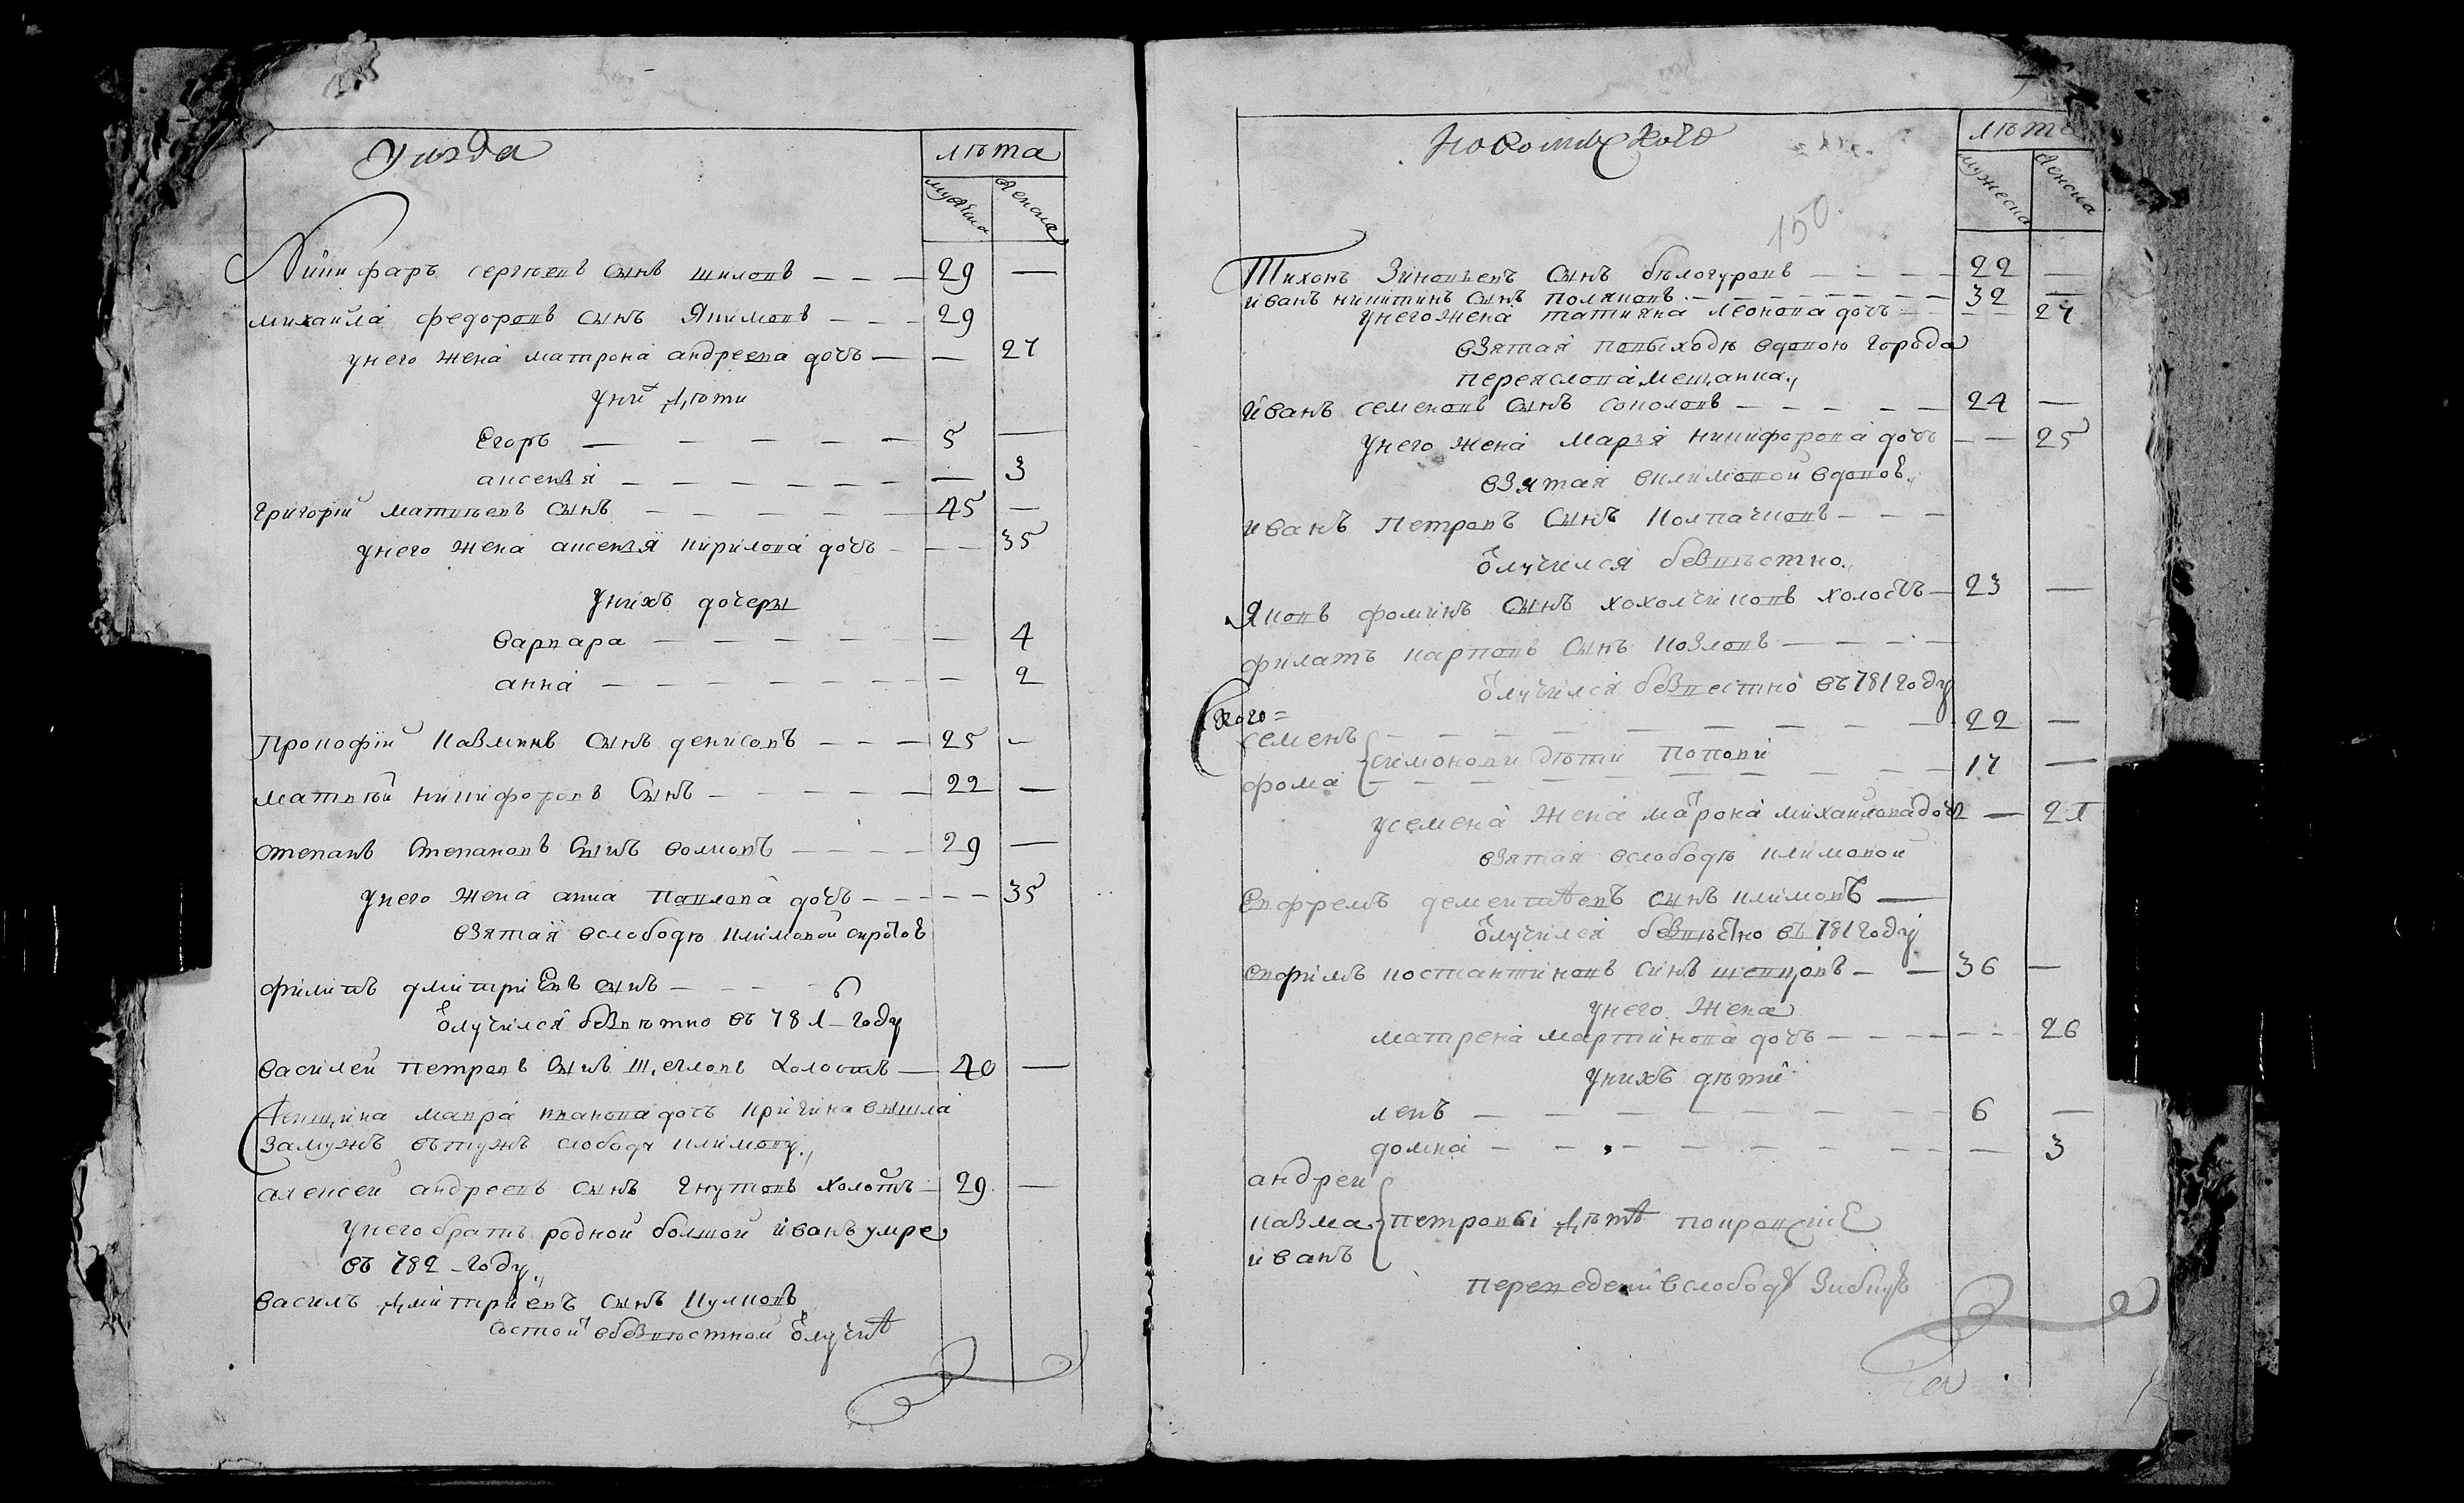 Уизда
лѣта
мужеска
женска
Никифаръ сергѣевъ сынъ шиловъ — — — 29 —
михаила федоровъ сынъ Якимовъ — — — 29
унего жена матрона андреева дочь — — 27
уни дѣти
Егоръ — — — — — 5 —
аксенья — — — — — — — 3
григорій матвѣевъ сынъ — — — — — 45 —
унего жена аксенья кирилова дочь — — — 35
унихъ дочеры
варвара — — — — — — 4
анна — — — — — — — — 2
Прокофій казминъ сынъ денисовъ — — — 25 —
матвѣй никифоровъ сынъ — — — — — 22 —
степанъ степановъ сынъ волковъ — — — — 29 —
унего жена анна павлова дочь — — — — — 35
взятая вслободѣ климовой сиротою
филипъ дмитриевъ сынъ — — — —
Ѿлучился безвѣстно въ 781 году
василей петровъ сынъ щегловъ холостъ — 40 —
женщина мавра иванова дочь кричина вышла
замужъ вътужъ слободу климову.
алексей андреевъ сынъ гнутовъ холостъ — 29 —
унего братъ родной болшой иванъ умре
въ 782 году.
василъ дмитриевъ сынъ кулковъ
состоитъ вбезвѣстной Ѿлучкѣ
новомѣскаго
лѣта
мужеска
женска
150.
Тихонъ Зиновьевъ сынъ бѣлогуровъ — — — — 22 —
иванъ никитинъ сынъ поляковъ — — — — — — — 32 —
унего жена татияна леонова дочь — — — — 27
взятая повыходѣ вдовою города
переяслова мещанка.
иванъ семеновъ сынъ соколовъ — — — — — 24 —
унего жена марья никифорова дочь — — 25
взятая вклимовой вдовою.
иванъ петровъ сынъ колпачковъ — — —
Ѿлучился безвѣстно.
Яковъ фоминъ сынъ хохолчиковъ холостъ — 23 —
филатъ карповъ сынъ козловъ — — — — —
Ѿлучился безвестно въ 781 году
семенъ — — — — — — — — 22 —
симонови дѣти попови
фома — — — — — — — — 17 —
усемена жена матрона михаилова дочь — 21
взятая вслободѣ климовой
Евфремъ дементѣевъ сынъ климовъ —
Ѿлучился безвѣстно въ 781 году
евфимъ костантиновъ синъ шевцовъ — — 36 —
унего жена
матрена мартинова дочь — — — — — — 26
унихъ дѣти
левъ — — — — — — — — 6 —
домна — — — — — — — — — — 3
андреи
казма петровы дѣтѣ покровские
иванъ
переведени вслободу Зибкую